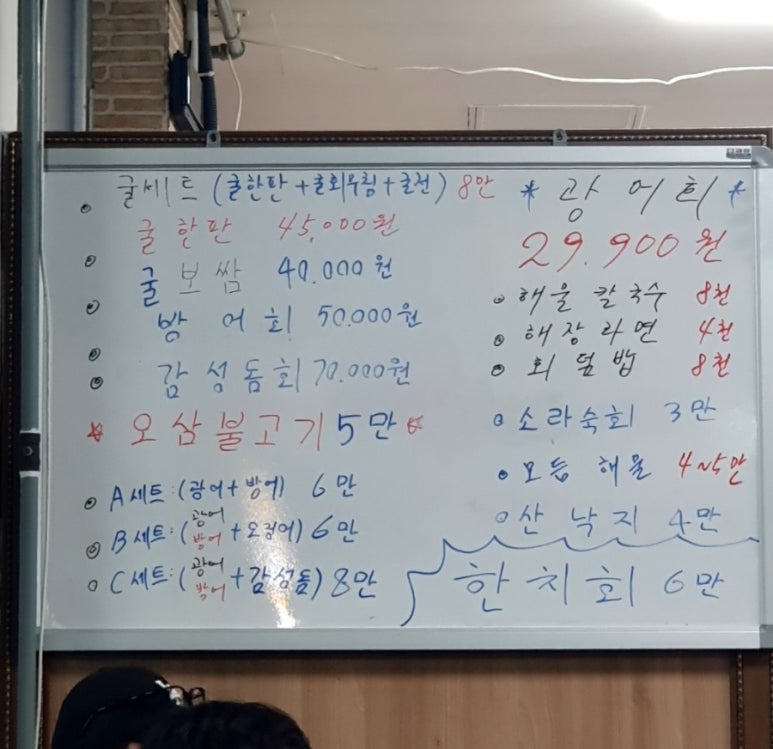 굴세트 (굴한판+굴회무침+굴전) 8만
굴한판 45,000원
굴보쌈 40.000원
방어회 50.000원
감성돔회 70.000원
오삼불고기 5만
A세트:(광어+방어) 6만
B세트:(광어 방어+오징어) 6만
C세트:(광어 방어+감성돔) 8만
* 광어회 *
29.900원
해물칼국수 8천
해장라면 4천
회덮밥 8천
소라숙회 3만
모듬해물 4~5만
산낙지 4만
한치회 6만